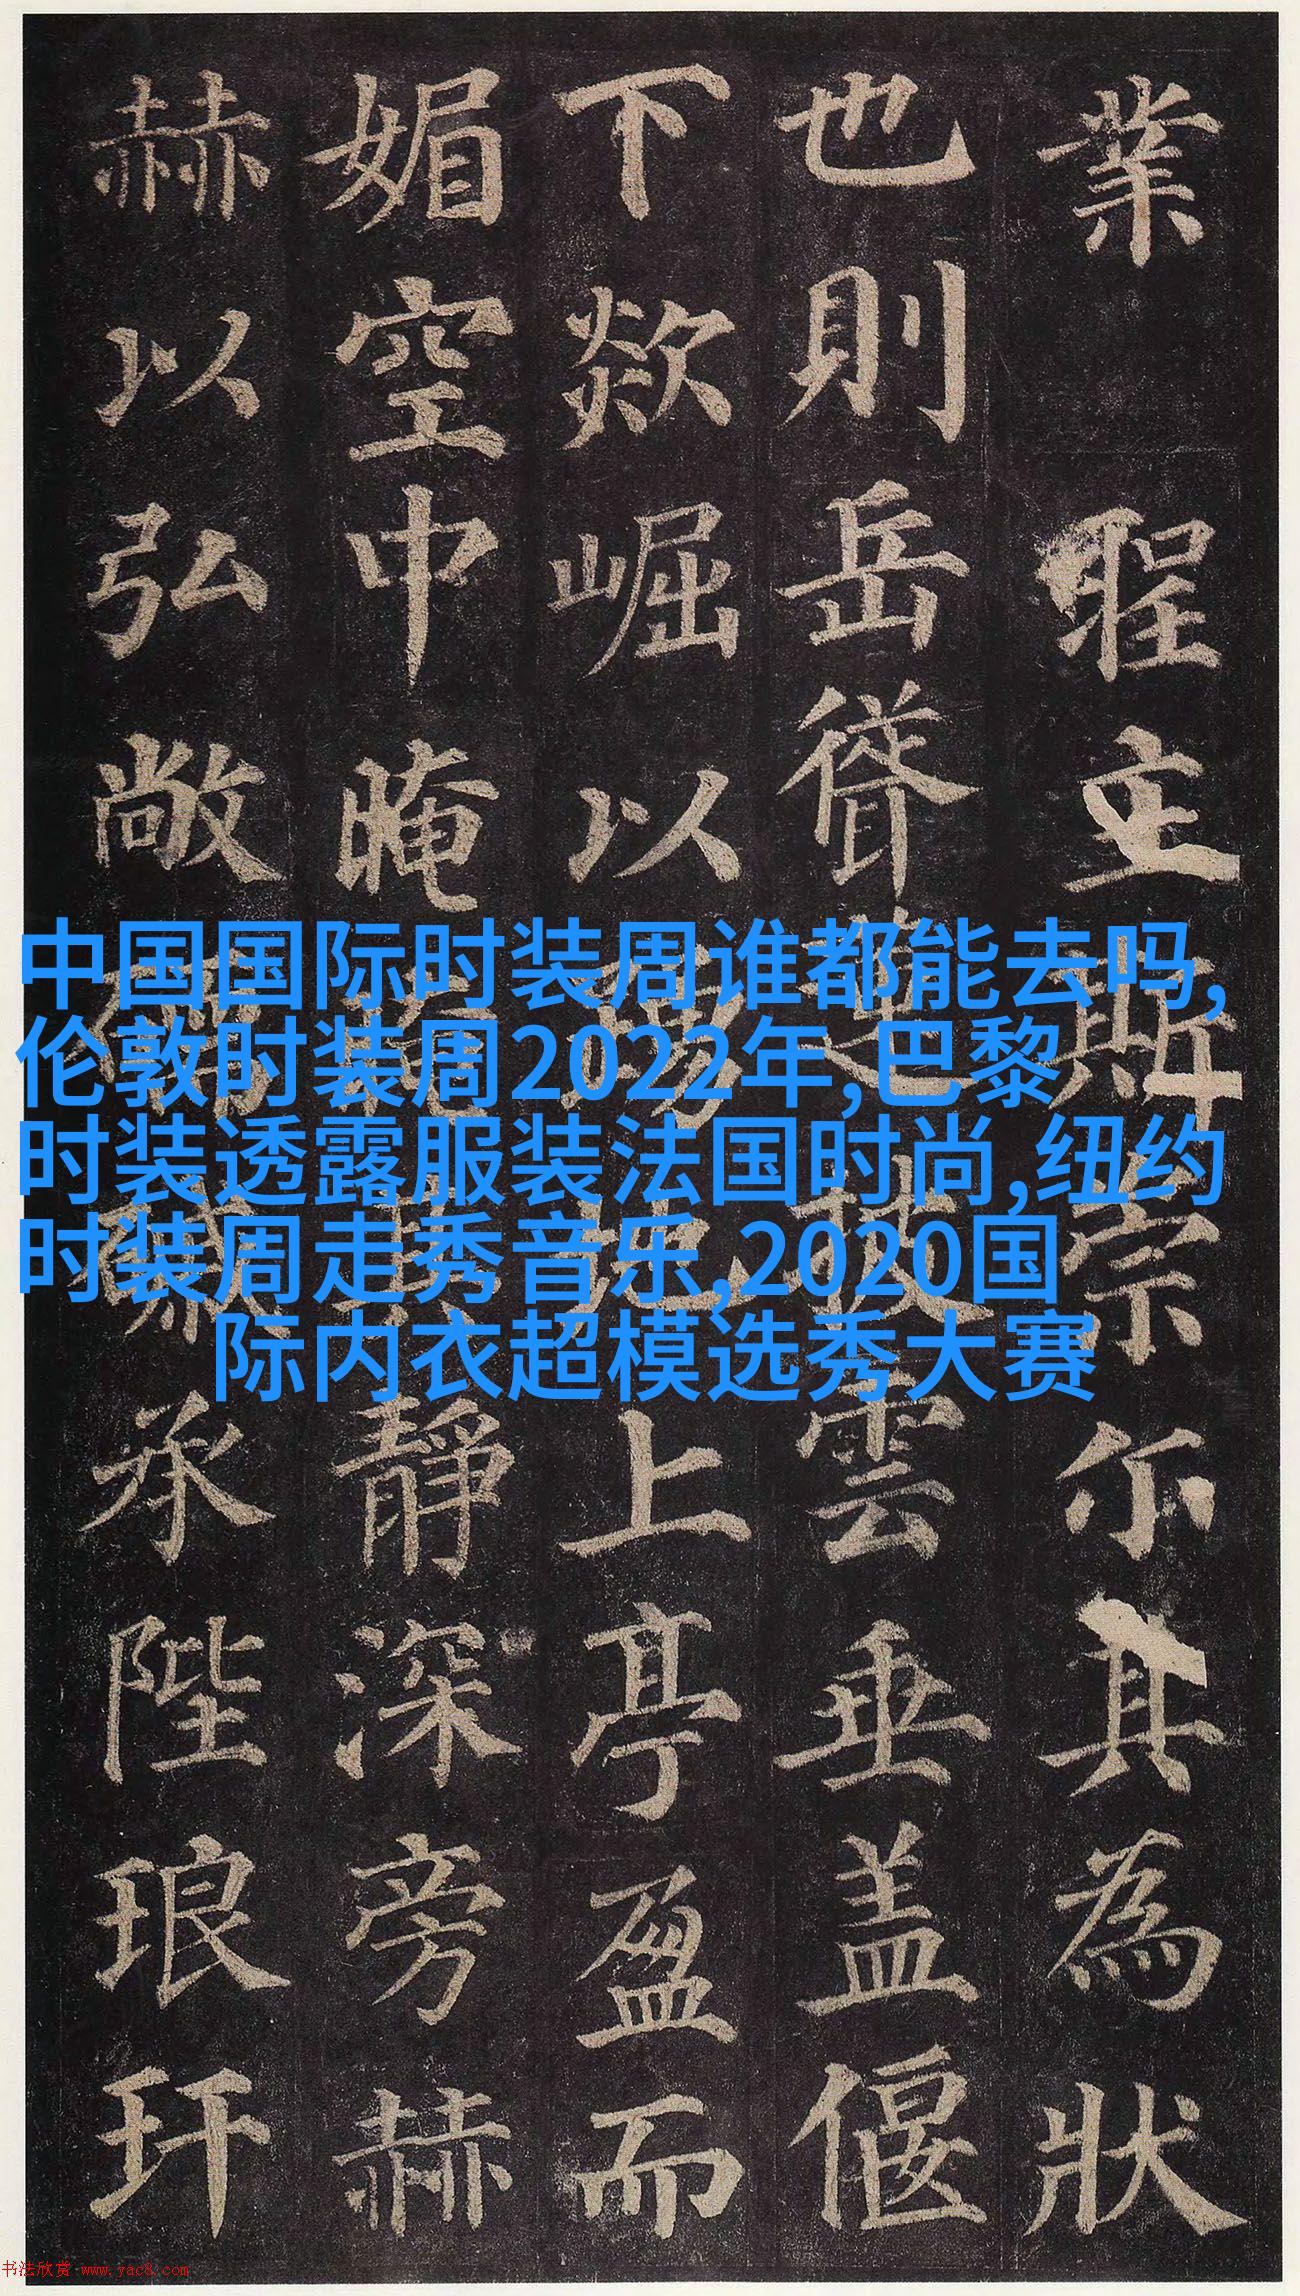 業聖立斯崇尔其為狀
也則岳聳蓮披雲垂盖偃
下欻崛以地上亭盈而
媚空中晻晻其靜深旁赫
赫以弘敞承陛琅玕
中国国际时装周谁都能去吗,
伦敦时装周2022年,巴黎
时装透露服装法国时尚,纽约
时装周走秀音乐,2020国
际内衣超模选秀大赛
书法欣赏 www.yac8.com